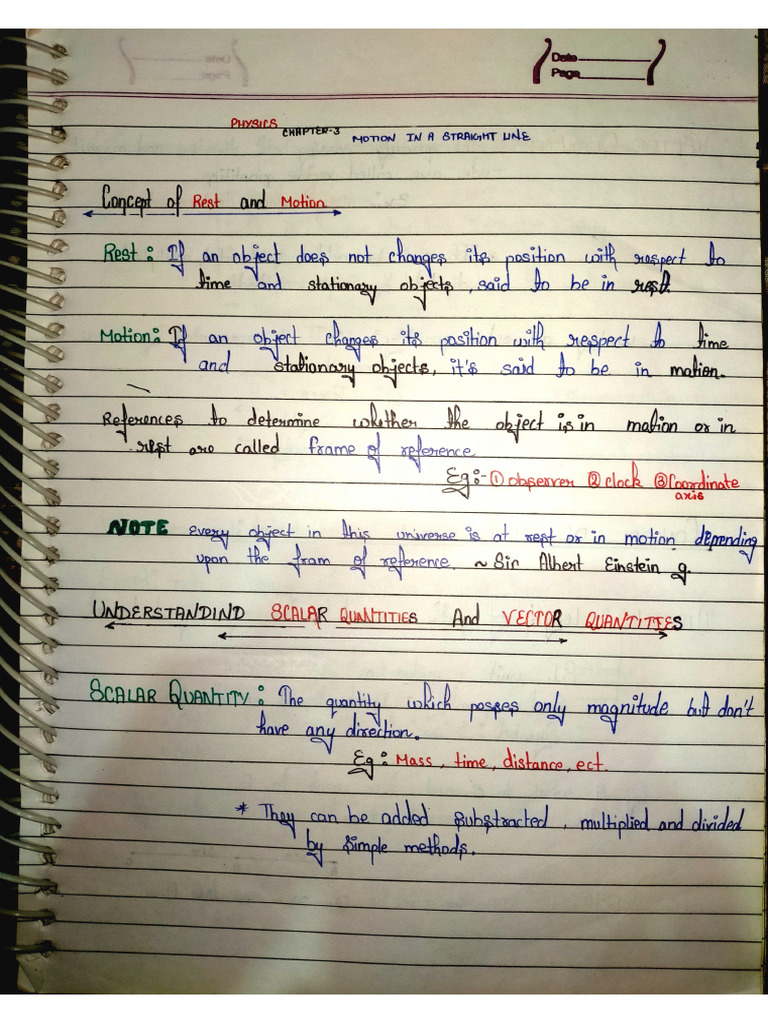 Date
Page
PHYSICS
CHAPTER-3 MOTION IN A STRAIGHT LINE
Concept of Rest and Motion.
Rest : If an object does not changes its position with respect to
time and stationary objects, said to be in rest.
Motion: If an object changes its position with respect to time
and stationary objects, it's said to be in motion.
References to determine whether the object is in motion or in
rest are called frame of reference.
Eg:- ① observer ② clock ③ Coordinate
axis
NOTE every object in this universe is at rest or in motion depending
upon the fram of reference. ~ Sir Albert Einstein g.
UNDERSTANDIND SCALAR QUNTITIES And VECTOR QUANTITIES
SCALAR QUANTITY : The quantity which posses only magnitude but don't
have any direction.
Eg : Mass, time, distance, ect.
* They can be added substracted, multiplied and divided
by simple methods.